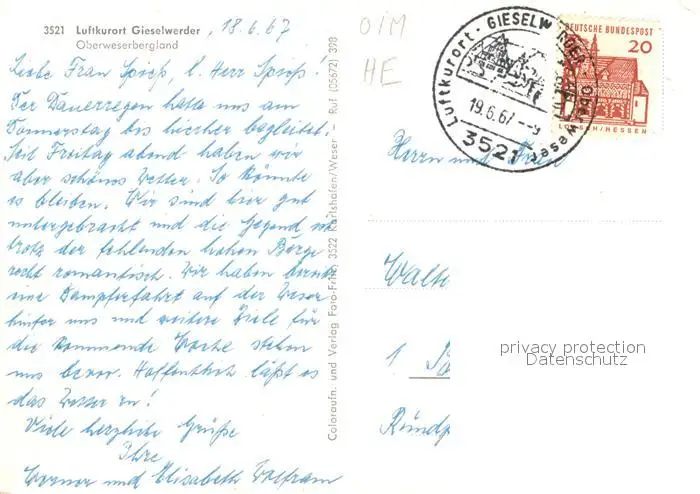 3521 Luftkurort Gieselwerder, 18.6.67
Oberweserbergland
Liebe Frau Spieß, l. Herr Spieß!
Der Dauerregen hatte uns am
Donnerstag bis hierher begleitet.
Seit Freitag abend haben wir
aber schönes Wetter. So könnte
es bleiben. Wir sind hier gut
untergebracht und die Gegend ist
trotz der fehlenden hohen Berge
recht romantisch. Wir haben bereits
eine Dampferfahrt auf der Weser
hinter uns und weitere Ziele für
die kommende Woche stehen
uns bevor. Hoffentlich läßt es
das Wetter zu!
Viele herzliche Grüße
Ihre
Werner und Elisabeth Wolfram
Coloraufn. und Verlag Foto-Fritz, 3522 Karlshafen/Weser - Ruf (05672) 398
O/M
HE
Luftkurort · GIESELWERDER
19.6.67 --9
3521
DEUTSCHE BUNDESPOST
20
LORSCH/HESSEN
Herrn und Frau
1
privacy protection
Datenschutz